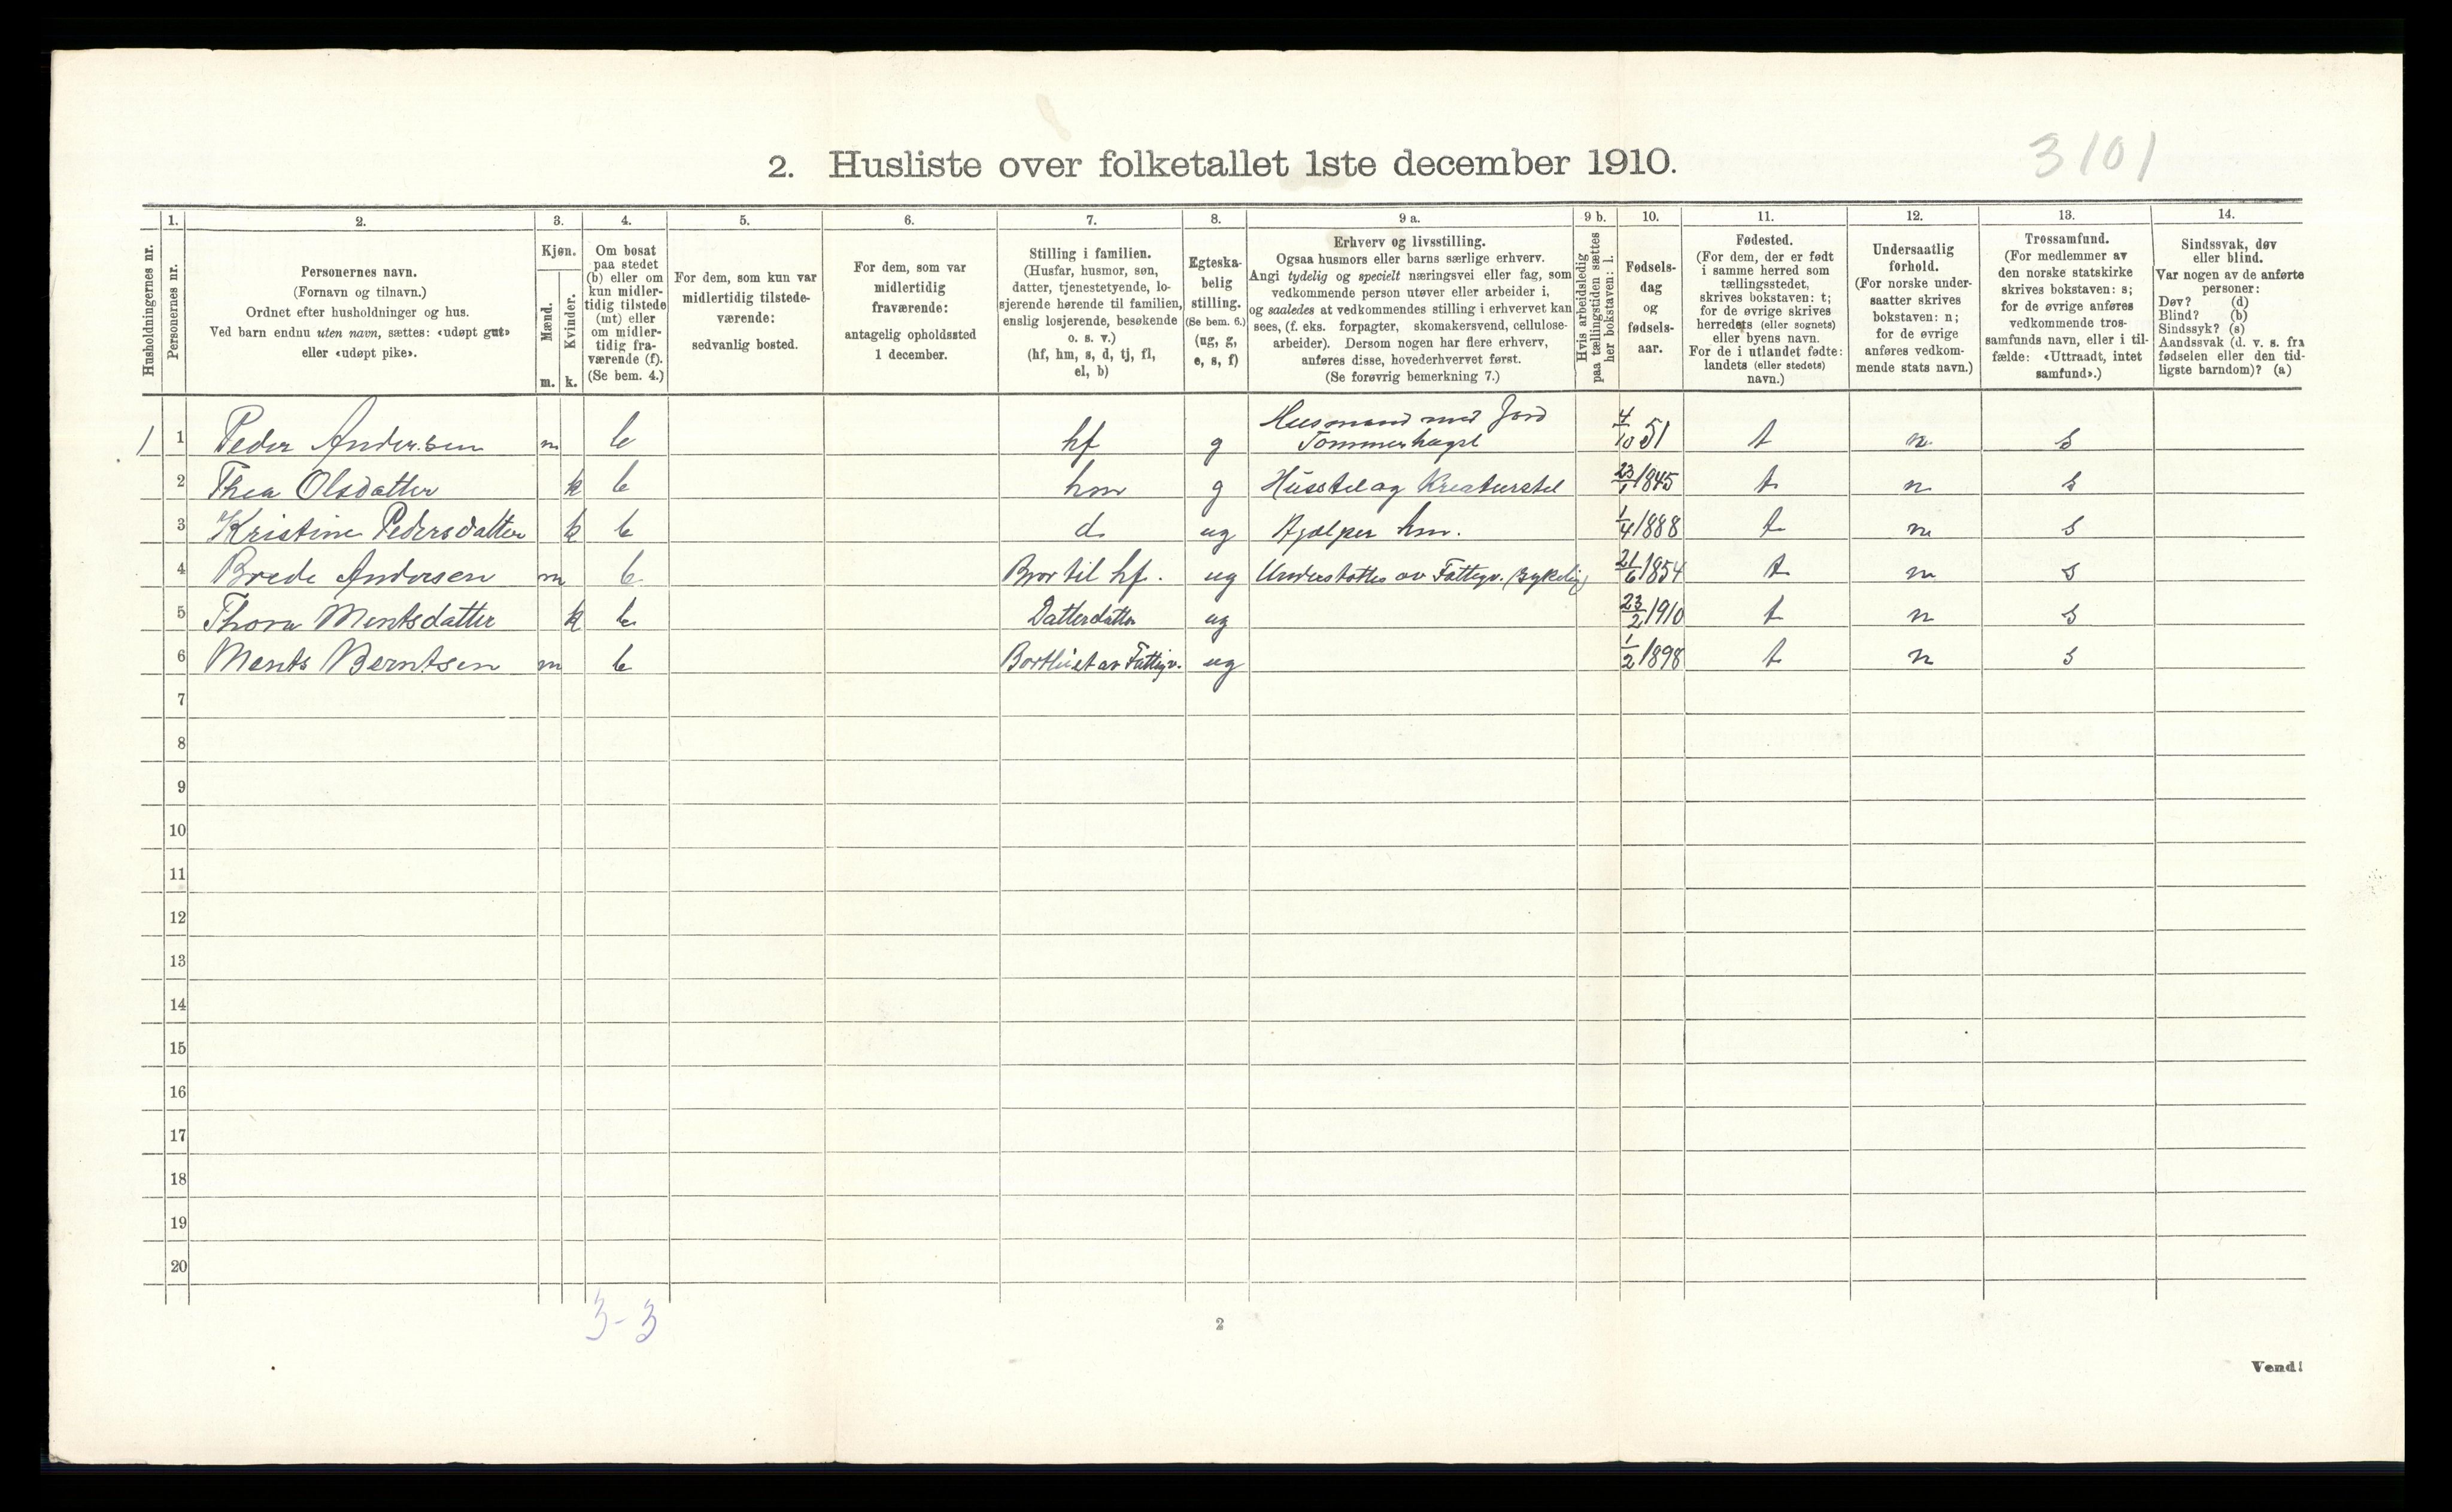 3101
2. Husliste over folketallet 1ste december 1910.
Husholdningernes nr.
1. Personernes nr.
2. Personernes navn.
(Fornavn og tilnavn.)
Ordnet efter husholdninger og hus.
Ved barn endnu uten navn, sættes: «udøpt gut»
eller «udøpt pike».
3. Kjøn.
Mænd. m.
Kvinder. k.
4. Om bosat
paa stedet
(b) eller om
kun midler-
tidig tilstede
(mt) eller
om midler-
tidig fra-
værende (f).
(Se bem. 4.)
5. For dem, som kun var
midlertidig tilstede-
værende:
sedvanlig bosted.
6. For dem, som var
midlertidig
fraværende:
antagelig opholdssted
1 december.
7. Stilling i familien.
(Husfar, husmor, søn,
datter, tjenestetyende, lo-
sjerende hørende til familien,
enslig losjerende, besøkende
o. s. v.)
(hf, hm, s, d, tj, fl,
el, b)
8. Egteska-
belig
stilling.
(Se bem. 6.)
(ug, g,
e, s, f)
9 a. Erhverv og livsstilling.
Ogsaa husmors eller barns særlige erhverv.
Angi tydelig og specielt næringsvei eller fag, som
vedkommende person utøver eller arbeider i,
og saaledes at vedkommendes stilling i erhvervet kan
sees, (f. eks. forpagter, skomakersvend, cellulose-
arbeider). Dersom nogen har flere erhverv,
anføres disse, hovederhvervet først.
(Se forøvrig bemerkning 7.)
9 b. Hvis arbeidsledig
paa tællingstiden sættes
her bokstaven: l.
10. Fødsels-
dag
og
fødsels-
aar.
11. Fødested.
(For dem, der er født
i samme herred som
tællingsstedet,
skrives bokstaven: t;
for de øvrige skrives
herredets (eller sognets)
eller byens navn.
For de i utlandet fødte:
landets (eller stedets)
navn.)
12. Undersaatlig
forhold.
(For norske under-
saatter skrives
bokstaven: n;
for de øvrige
anføres vedkom-
mende stats navn.)
13. Trossamfund.
(For medlemmer av
den norske statskirke
skrives bokstaven: s;
for de øvrige anføres
vedkommende tros-
samfunds navn, eller i til-
fælde: «Uttraadt, intet
samfund».)
14. Sindssvak, døv
eller blind.
Var nogen av de anførte
personer:
Døv? (d)
Blind? (b)
Sindssyk? (s)
Aandssvak (d. v. s. fra
fødselen eller den tid-
ligste barndom)? (a)
1 1 Peder Andersen m b hf g Husmand med Jord Tømmerhugst 4/10 51 t n s
2 Thea Olsdatter k b hm g Husstel og Kreaturstel 23/1 1845 t n s
3 Kristine Pedersdatter k b d ug Hjælper hm. 1/4 1888 t n s
4 Brede Andersen m b Bror til hf. ug Understøttes av Fattigv. (sykelig) 21/6 1854 t n s
5 Thora Mentsdatter k b Datterdatter ug 23/2 1910 t n s
6 Ments Berntsen m b Bortsat av Fattigv. ug 1/2 1898 t n s
7
8
9
10
11
12
13
14
15
16
17
18
19
20
3-3
2
Vend!